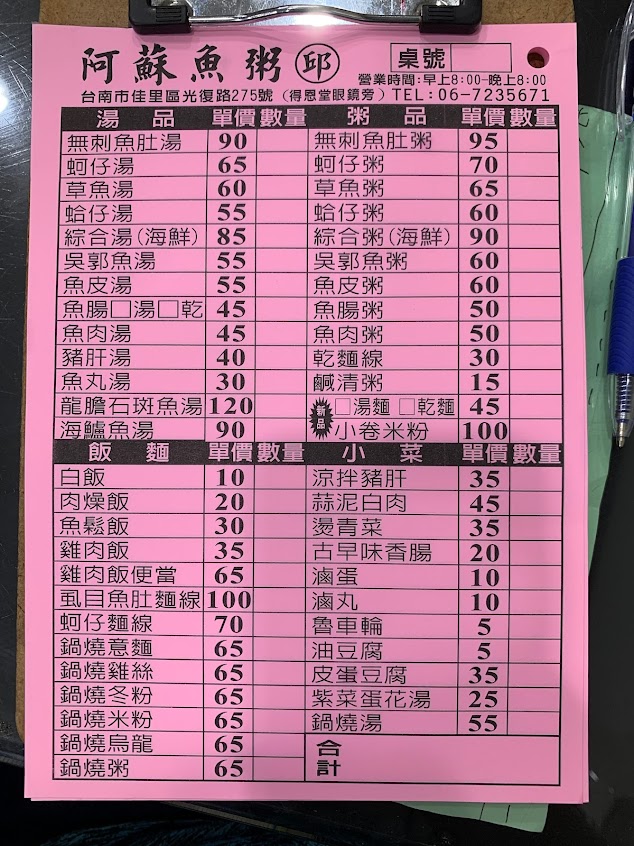 阿蘇魚粥 邱 桌號
營業時間:早上8:00-晚上8:00
台南市佳里區光復路275號（得恩堂眼鏡旁）TEL:06-7235671
湯品 單價 數量 粥品 單價 數量
無刺魚肚湯 90 無刺魚肚粥 95
蚵仔湯 65 蚵仔粥 70
草魚湯 60 草魚粥 65
蛤仔湯 55 蛤仔粥 60
綜合湯(海鮮) 85 綜合粥(海鮮) 90
吳郭魚湯 55 吳郭魚粥 60
魚皮湯 55 魚皮粥 60
魚腸□湯□乾 45 魚腸粥 50
魚肉湯 45 魚肉粥 50
豬肝湯 40 乾麵線 30
魚丸湯 30 鹹清粥 15
龍膽石斑魚湯 120 新品 □湯麵 □乾麵 45
海鱸魚湯 90 小卷米粉 100
飯麵 單價 數量 小菜 單價 數量
白飯 10 涼拌豬肝 35
肉燥飯 20 蒜泥白肉 45
魚鬆飯 30 燙青菜 35
雞肉飯 35 古早味香腸 20
雞肉飯便當 65 滷蛋 10
虱目魚肚麵線 100 滷丸 10
蚵仔麵線 70 魯車輪 5
鍋燒意麵 65 油豆腐 5
鍋燒雞絲 65 皮蛋豆腐 35
鍋燒冬粉 65 紫菜蛋花湯 25
鍋燒米粉 65 鍋燒湯 55
鍋燒烏龍 65 合計
鍋燒粥 65